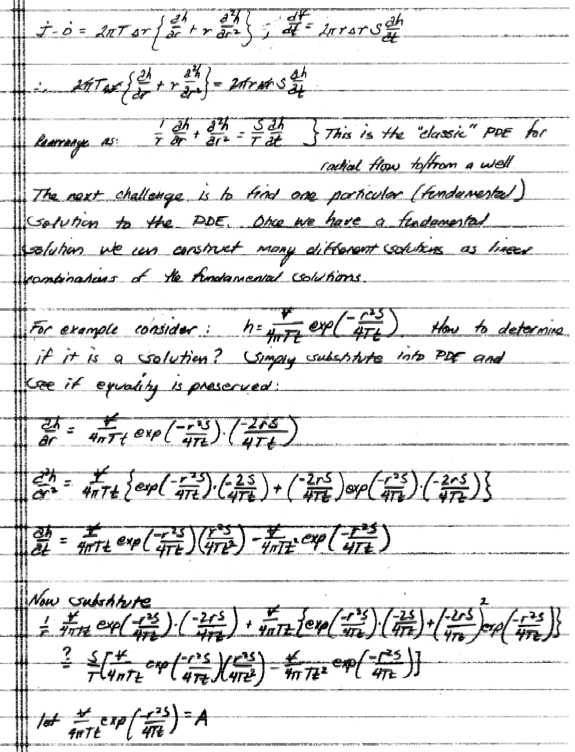 İ - Ȯ = 2πT Δr { ∂h/∂r + r ∂²h/∂r² } ; dV̶/dt = 2πrΔr S ∂h/∂t
∴ 2πTΔr { ∂h/∂r + r ∂²h/∂r² } = 2πrΔr S ∂h/∂t
Rearrange as: 1/r ∂h/∂r + ∂²h/∂r² = S/T ∂h/∂t } This is the "classic" PDE for
radial flow to/from a well
The next challenge is to find one particular (fundamental)
solution to the PDE. Once we have a fundamental
solution we can construct many different solutions as linear
combinations of the fundamental solutions.
For example consider: h = V̶/4πTt exp(-r²S/4Tt). How to determine
if it is a solution? Simply substitute into PDE and
see if equality is preserved:
∂h/∂r = V̶/4πTt exp(-r²S/4Tt)·(-2rS/4Tt)
∂²h/∂r² = V̶/4πTt { exp(-r²S/4Tt)·(-2S/4Tt) + (-2rS/4Tt) exp(-r²S/4Tt)·(-2rS/4Tt) }
∂h/∂t = V̶/4πTt exp(-r²S/4Tt)(r²S/4Tt²) - V̶/4πTt² exp(-r²S/4Tt)
Now substitute
1/r V̶/4πTt exp(-r²S/4Tt)·(-2rS/4Tt) + V̶/4πTt { exp(-r²S/4Tt)·(-2S/4Tt) + (-2rS/4Tt)² exp(-r²S/4Tt) }
?= S/T [ V̶/4πTt exp(-r²S/4Tt)(r²S/4Tt²) - V̶/4πTt² exp(-r²S/4Tt) ]
let V̶/4πTt exp(-r²S/4Tt) = A